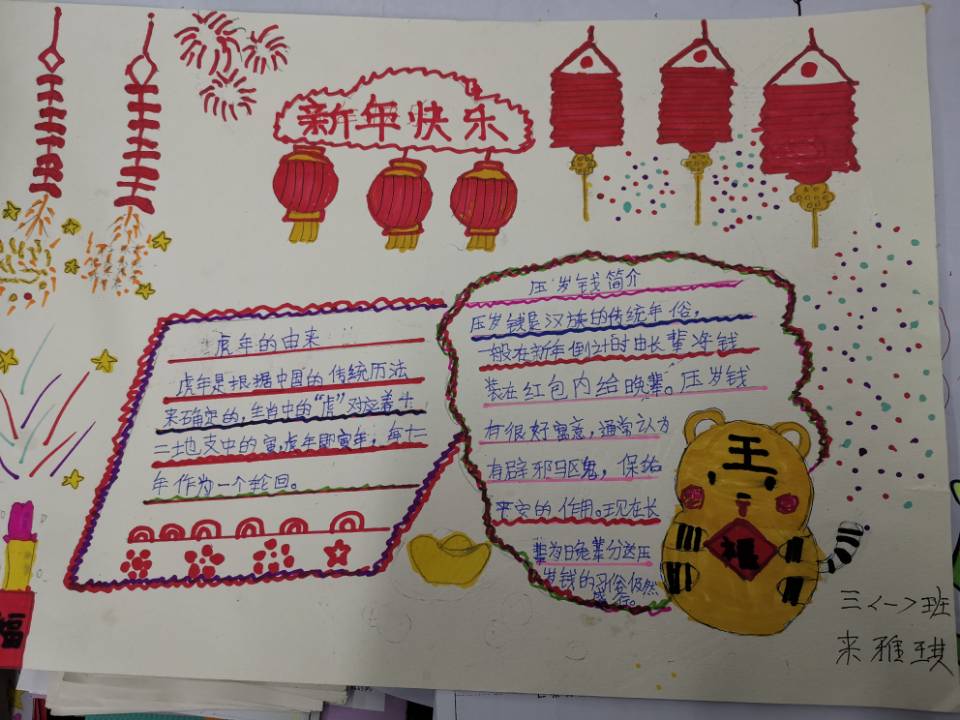 新年快乐
虎年的由来
虎年是根据中国的传统历法
来确定的,生肖中的“虎”对应着十
二地支中的寅,虎年即寅年,每十二
年作为一个轮回。
压岁钱简介
压岁钱是汉族的传统年俗,
一般在新年倒计时由长辈将钱
装在红包内给晚辈。压岁钱
有很好寓意,通常认为
有辟邪驱鬼,保给
平安的作用。现在长
辈为晚辈分送压
岁钱的习俗仍然
盛行。
王
福
福
三<一>班
来雅琪